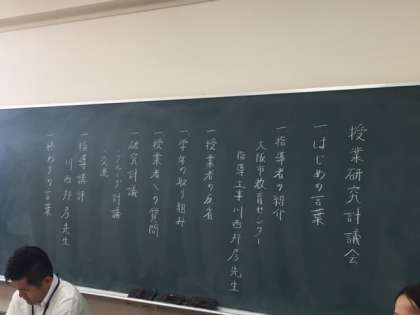 授業研究討議会
一はじめの言葉
一指導者の紹介
大阪市教育センター
指導主事川西 先生
一授業者の反省
一学年の取り組み
一授業者への質問
一研究討議
グループ討議
交流
一指導講評
川西 先生
一終わりの言葉